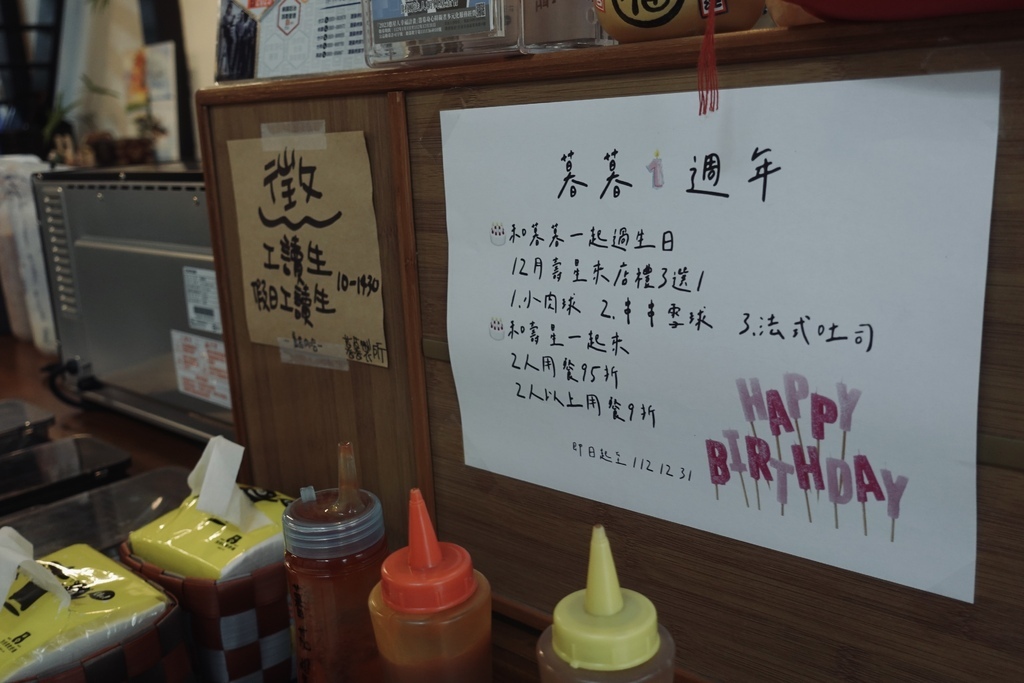 徵
工讀生
假日工讀生
10-1930
暮暮製所
暮暮 1 週年
和暮暮一起過生日
12月壽星來店禮3選1
1.小肉球 2.串串雪球 3.法式吐司
和壽星一起來
2人用餐95折
2人以上用餐9折
即日起至 112 12 31
HAPPY
BIRTHDAY